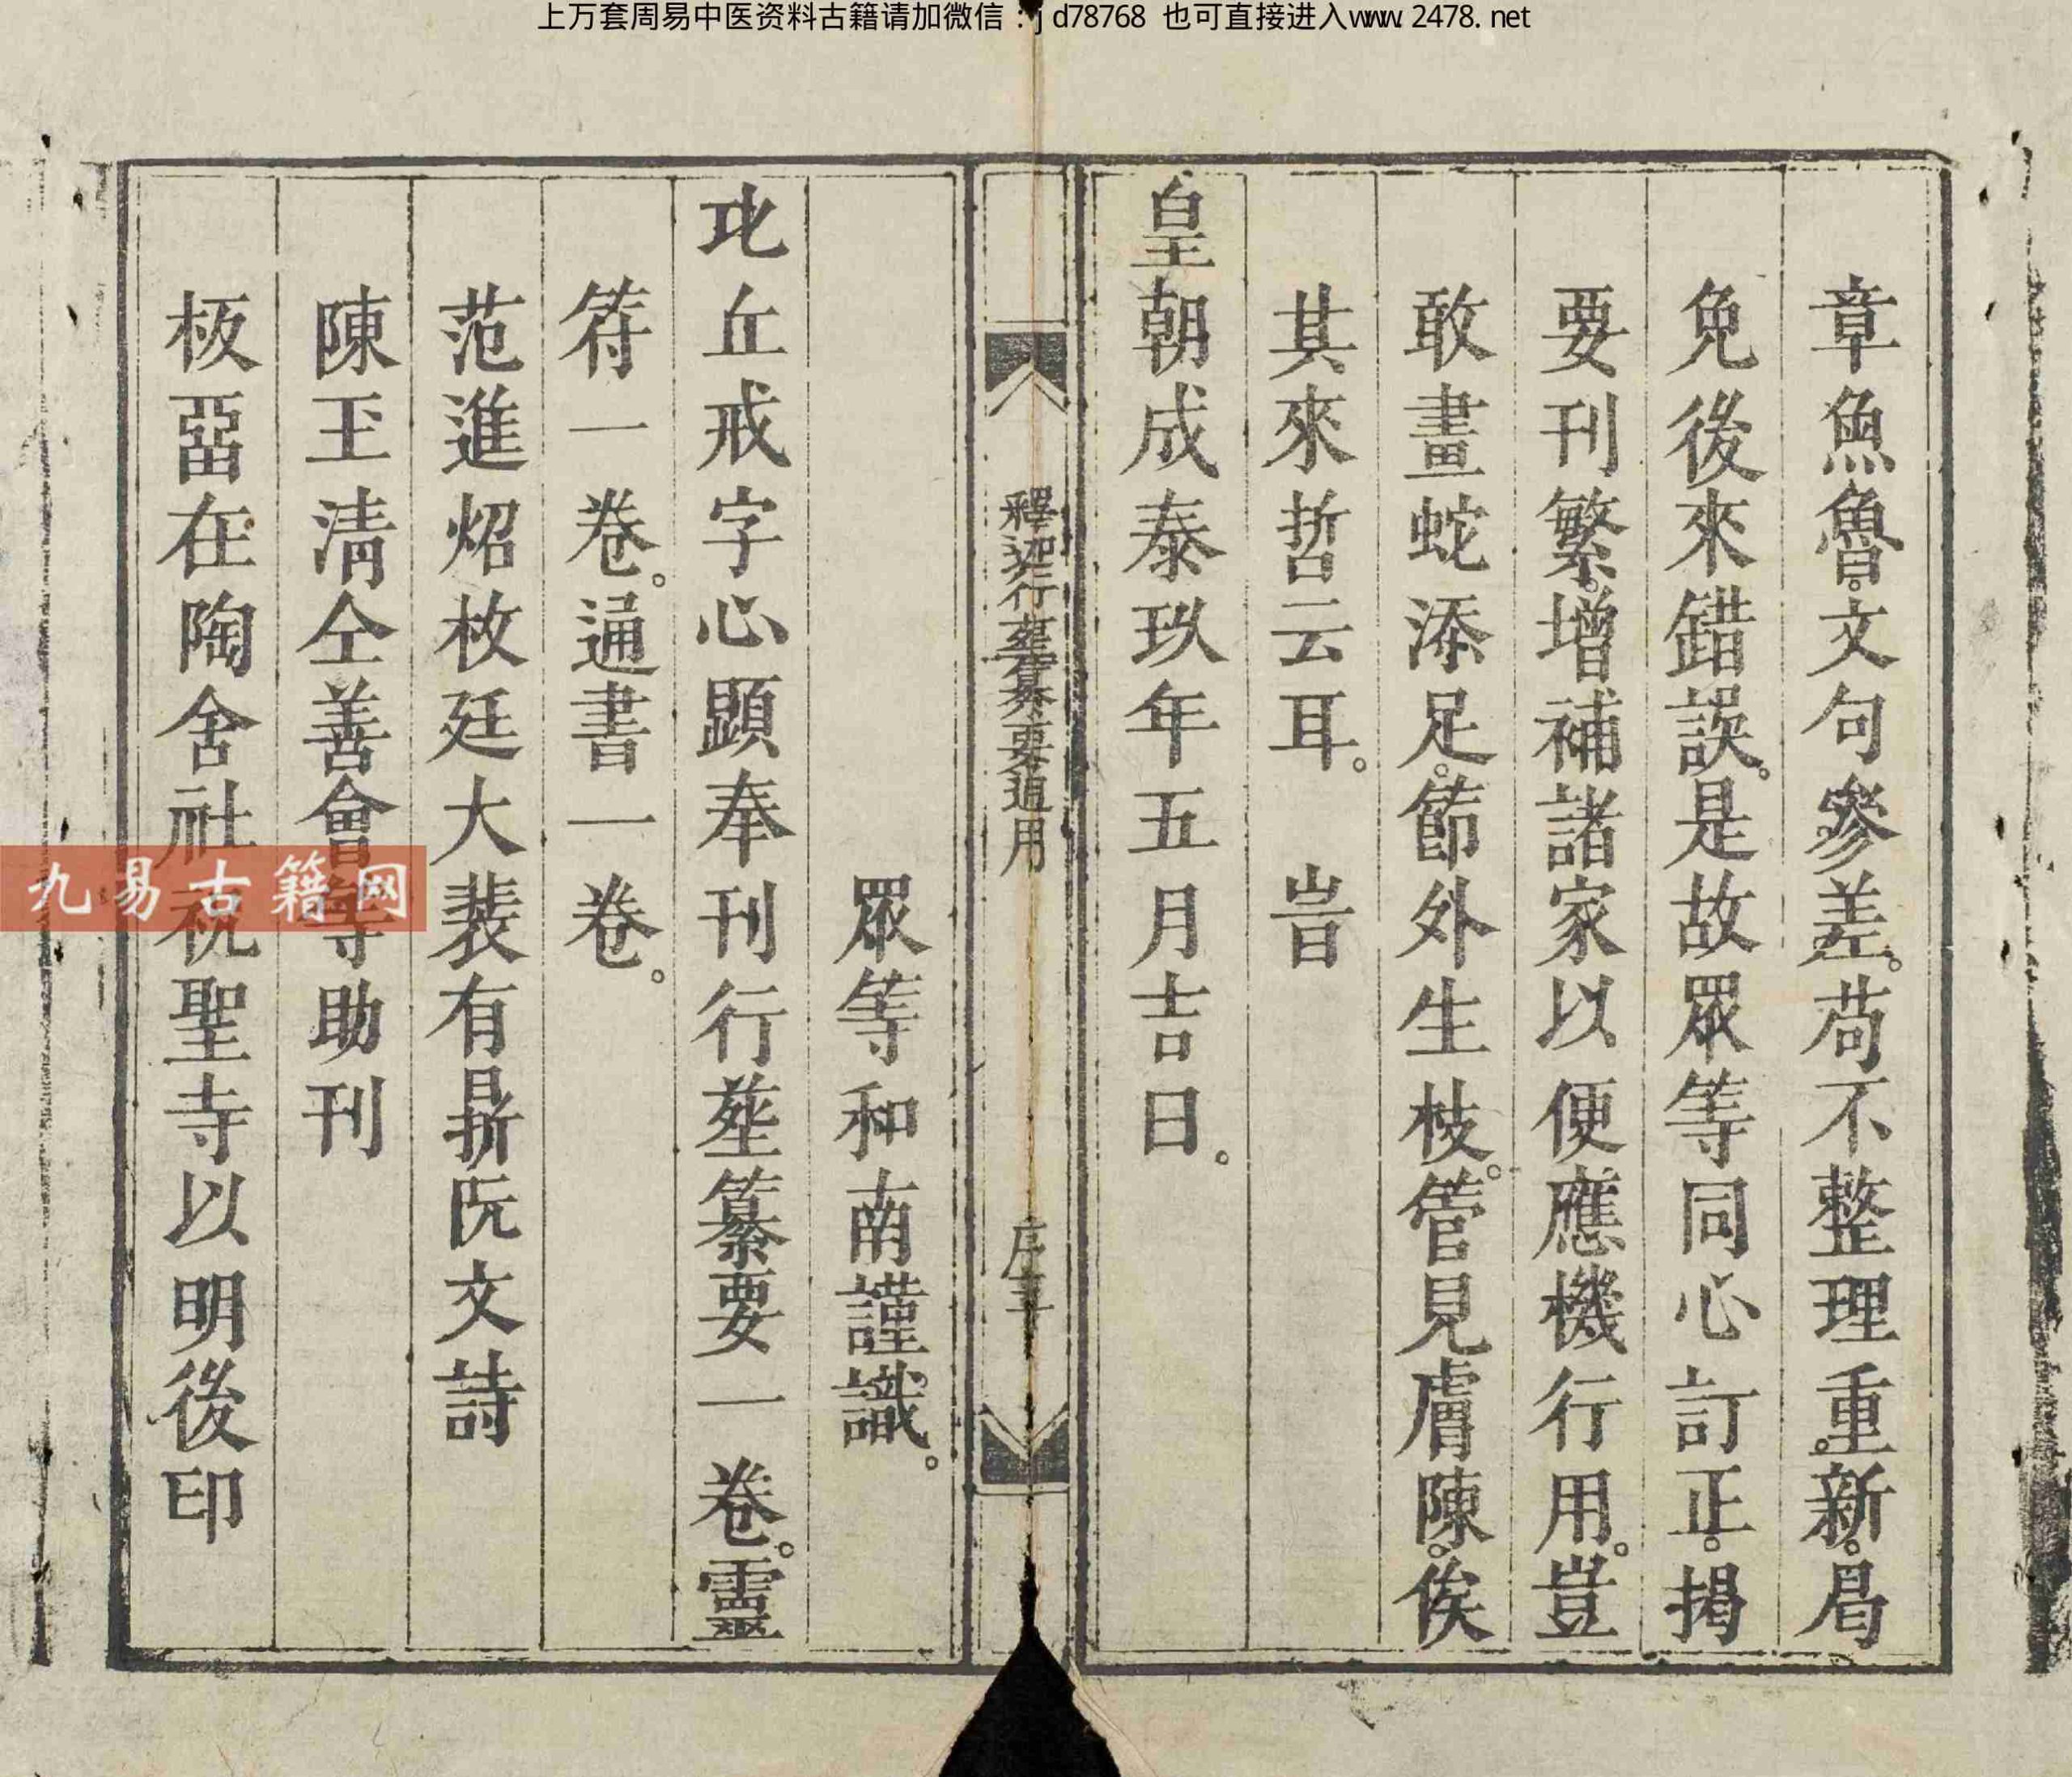 上万套周易中医资料古籍请加微信:jd78768 也可直接进入www.2478.net
章魚魯。文句參差。苟不整理重新。曷
免後來錯誤。是故眾等同心訂正。掲
要刊繁。增補諸家以便應機行用。豈
敢畫蛇添足。節外生枝。管見膚陳。俟
其來哲云耳。 旹
皇朝成泰玖年五月吉日。
釋迦行𦵏纂要通用
序
眾等和南謹識。
比丘戒字心顕奉刊行𦵏纂要一卷。靈
符一卷。通書一卷。
范進炤枚廷大裴有𣂰阮文詩
陳玉清仝善會等助刊
板畱在陶舍社祝聖寺以明後印
九易古籍网